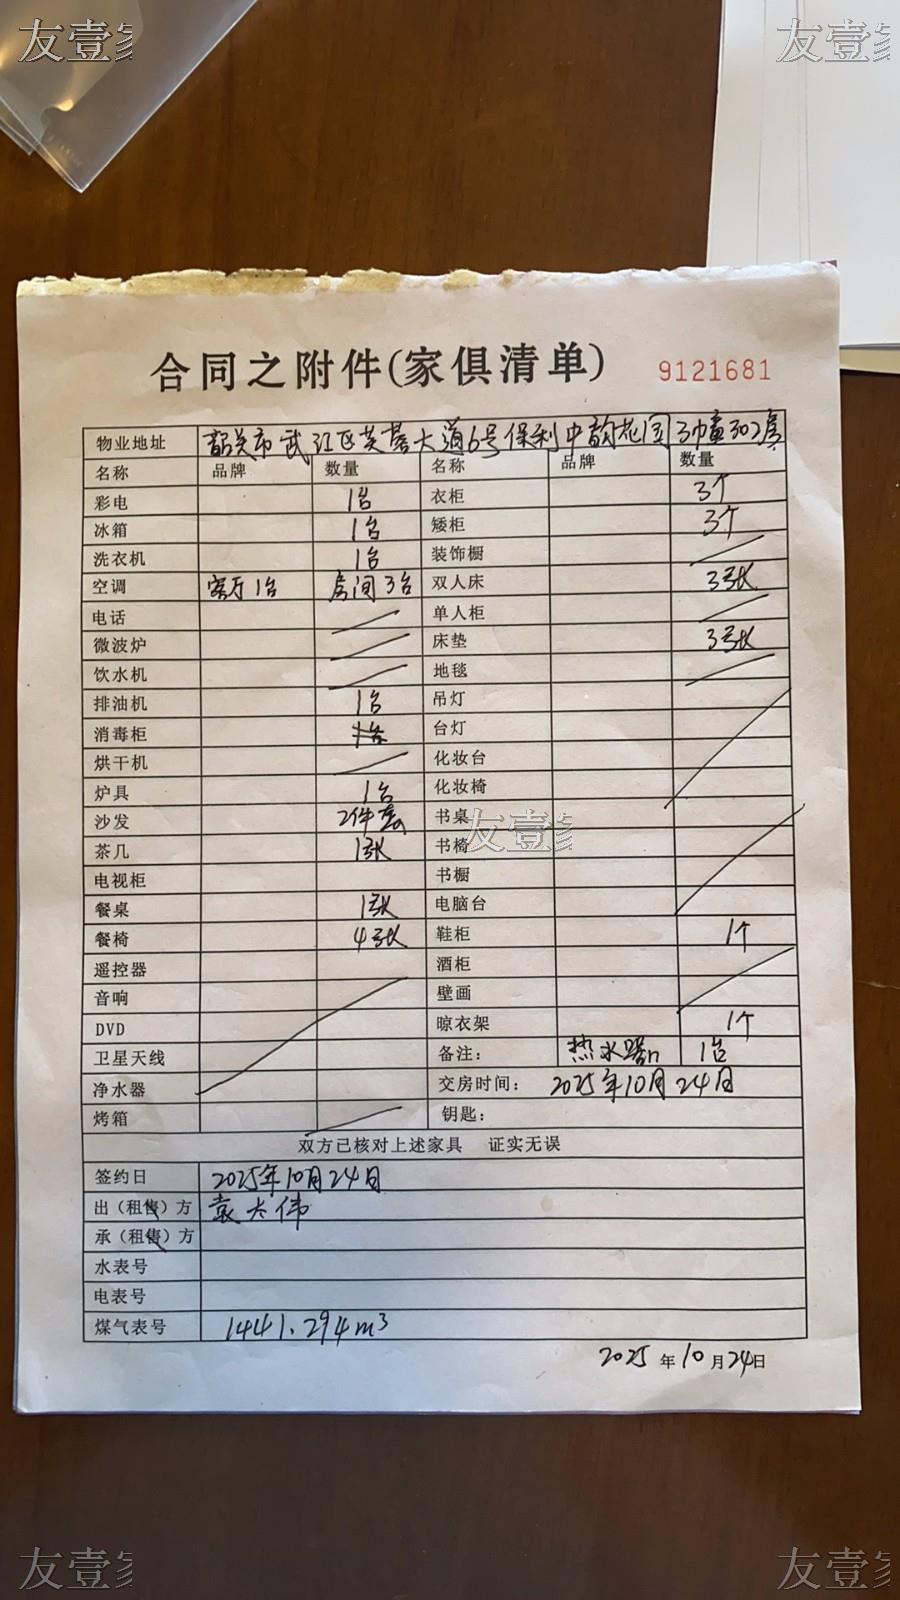 友壹家 友壹家
合同之附件(家俱清单) 9121681
物业地址 韶关市武江区芙蓉大道6号保利中韵花园3幢302房
名称 品牌 数量 名称 品牌 数量
彩电 1台 衣柜 3个
冰箱 1台 矮柜 3个
洗衣机 1台 装饰橱
空调 客厅1台 房间3台 双人床 3张
电话 单人柜
微波炉 床垫 3张
饮水机 地毯
排油机 1台 吊灯
消毒柜 台灯
烘干机 化妆台
炉具 1台 化妆椅
沙发 2件套 书桌
友壹家
茶几 1张 书椅
电视柜 书橱
餐桌 1张 电脑台
餐椅 4张 鞋柜 1个
遥控器 酒柜
音响 壁画
DVD 晾衣架 1个
卫星天线 备注: 热水器 1台
净水器 交房时间: 2025年10月24日
烤箱 钥匙:
双方已核对上述家具 证实无误
签约日 2025年10月24日
出(租售)方 袁大伟
承(租售)方
水表号
电表号
煤气表号 1441.294m³
2025年10月24日
友壹家 友壹家